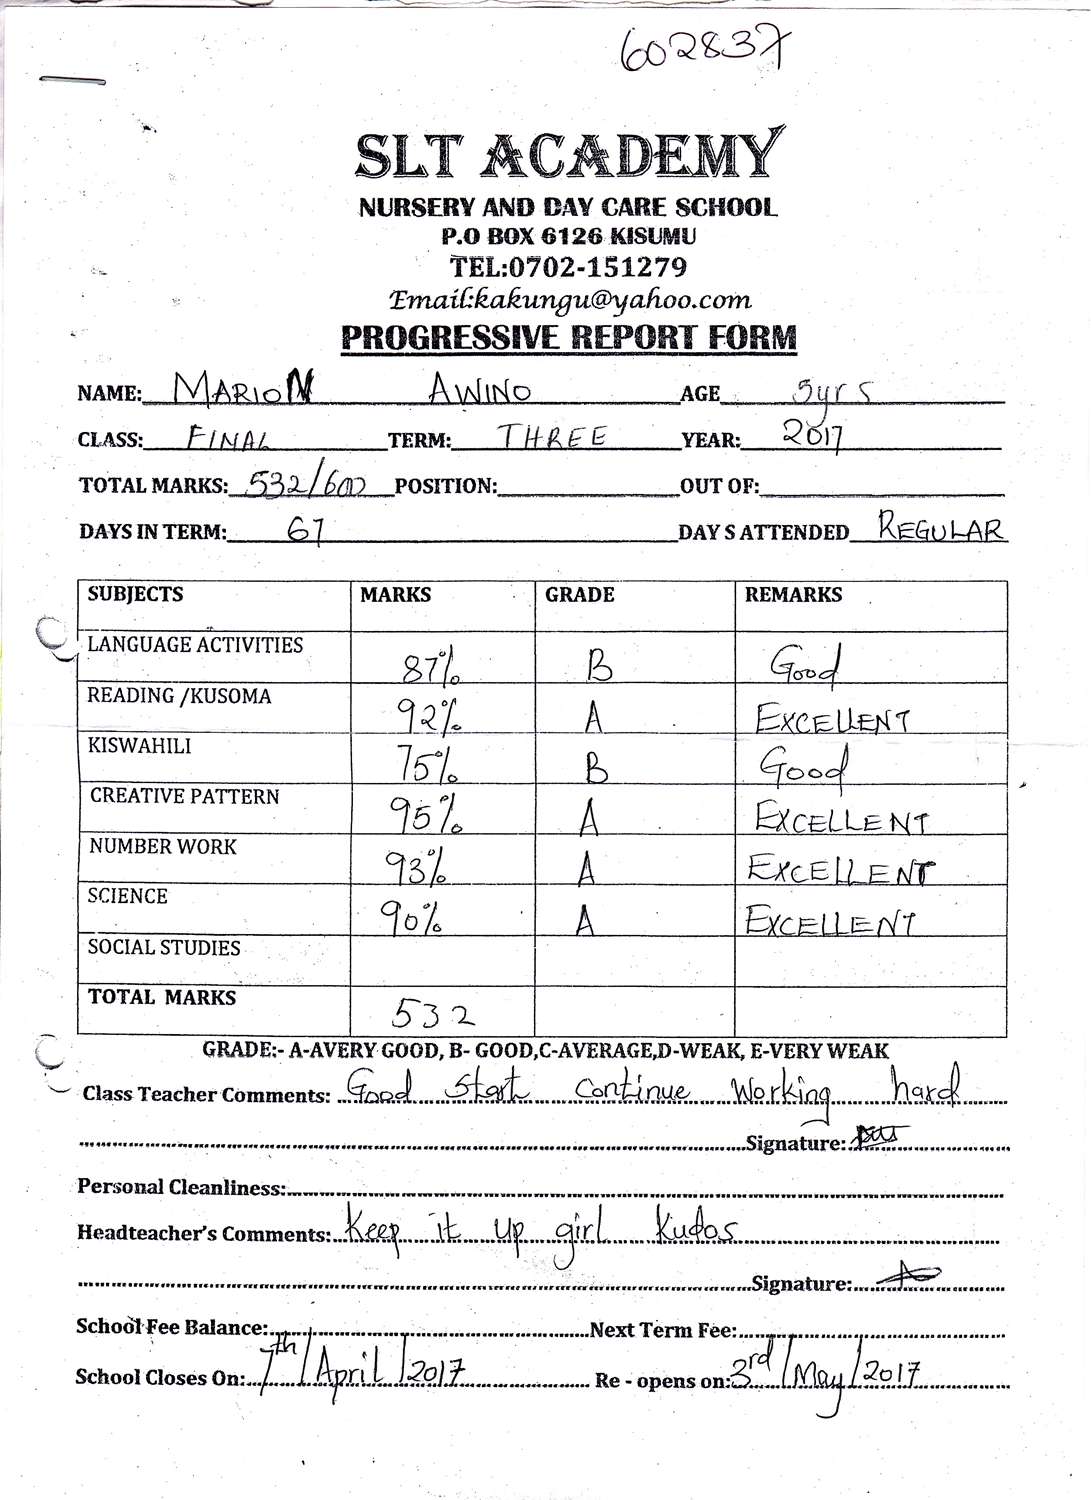 602837
SLT ACADEMY
NURSERY AND DAY CARE SCHOOL
P.O BOX 6126 KISUMU
TEL:0702-151279
Email:kakungu@yahoo.com
PROGRESSIVE REPORT FORM
NAME: MARION AWINO AGE 5yrs
CLASS: FINAL TERM: THREE YEAR: 2017
TOTAL MARKS: 532/600 POSITION: OUT OF:
DAYS IN TERM: 67 DAY S ATTENDED REGULAR
SUBJECTS MARKS GRADE REMARKS
LANGUAGE ACTIVITIES 87% B Good
READING /KUSOMA 92% A EXCELLENT
KISWAHILI 75% B Good
CREATIVE PATTERN 95% A EXCELLENT
NUMBER WORK 93% A EXCELLENT
SCIENCE 90% A EXCELLENT
SOCIAL STUDIES
TOTAL MARKS 532
GRADE:- A-AVERY GOOD, B- GOOD,C-AVERAGE,D-WEAK, E-VERY WEAK
Class Teacher Comments: Good Start Continue Working hard
Signature:
Personal Cleanliness:
Headteacher's Comments: Keep it up girl kudos
Signature:
School Fee Balance: Next Term Fee:
School Closes On: 7th/April/2017 Re - opens on: 3rd/May/2017